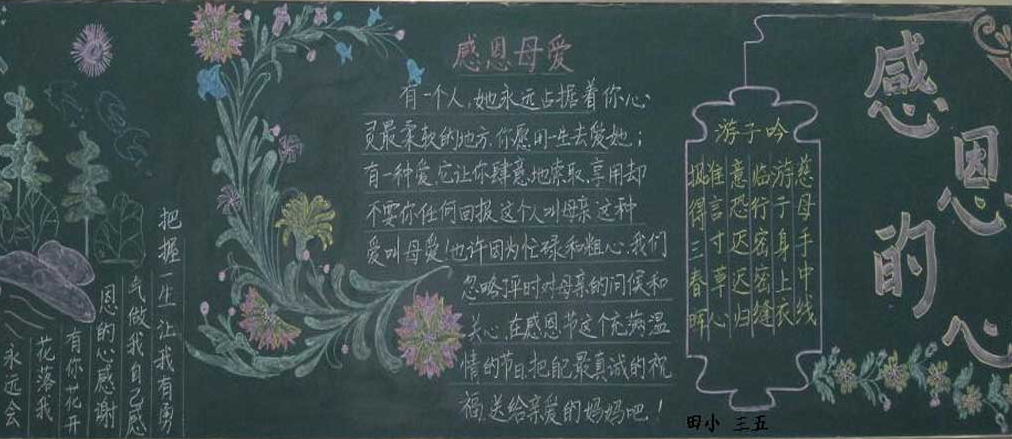 感恩的心
感恩母爱
有一个人,她永远占据着你心
灵最柔软的地方,你愿用一生去爱她;
有一种爱,它让你肆意地索取、享用却
不要你任何回报,这个人叫母亲,这种
爱叫母爱!也许因为忙碌和粗心,我们
忽略平时对母亲的问候和
关心,在感恩节这个充满温
情的节日,把自己最真诚的祝
福,送给亲爱的妈妈吧!
游子吟
慈母手中线
游子身上衣
临行密密缝
意恐迟迟归
谁言寸草心
报得三春晖
把握一生让我有勇
气做我自己感
恩的心感谢
有你花开
花落我
永远会
田小 三五